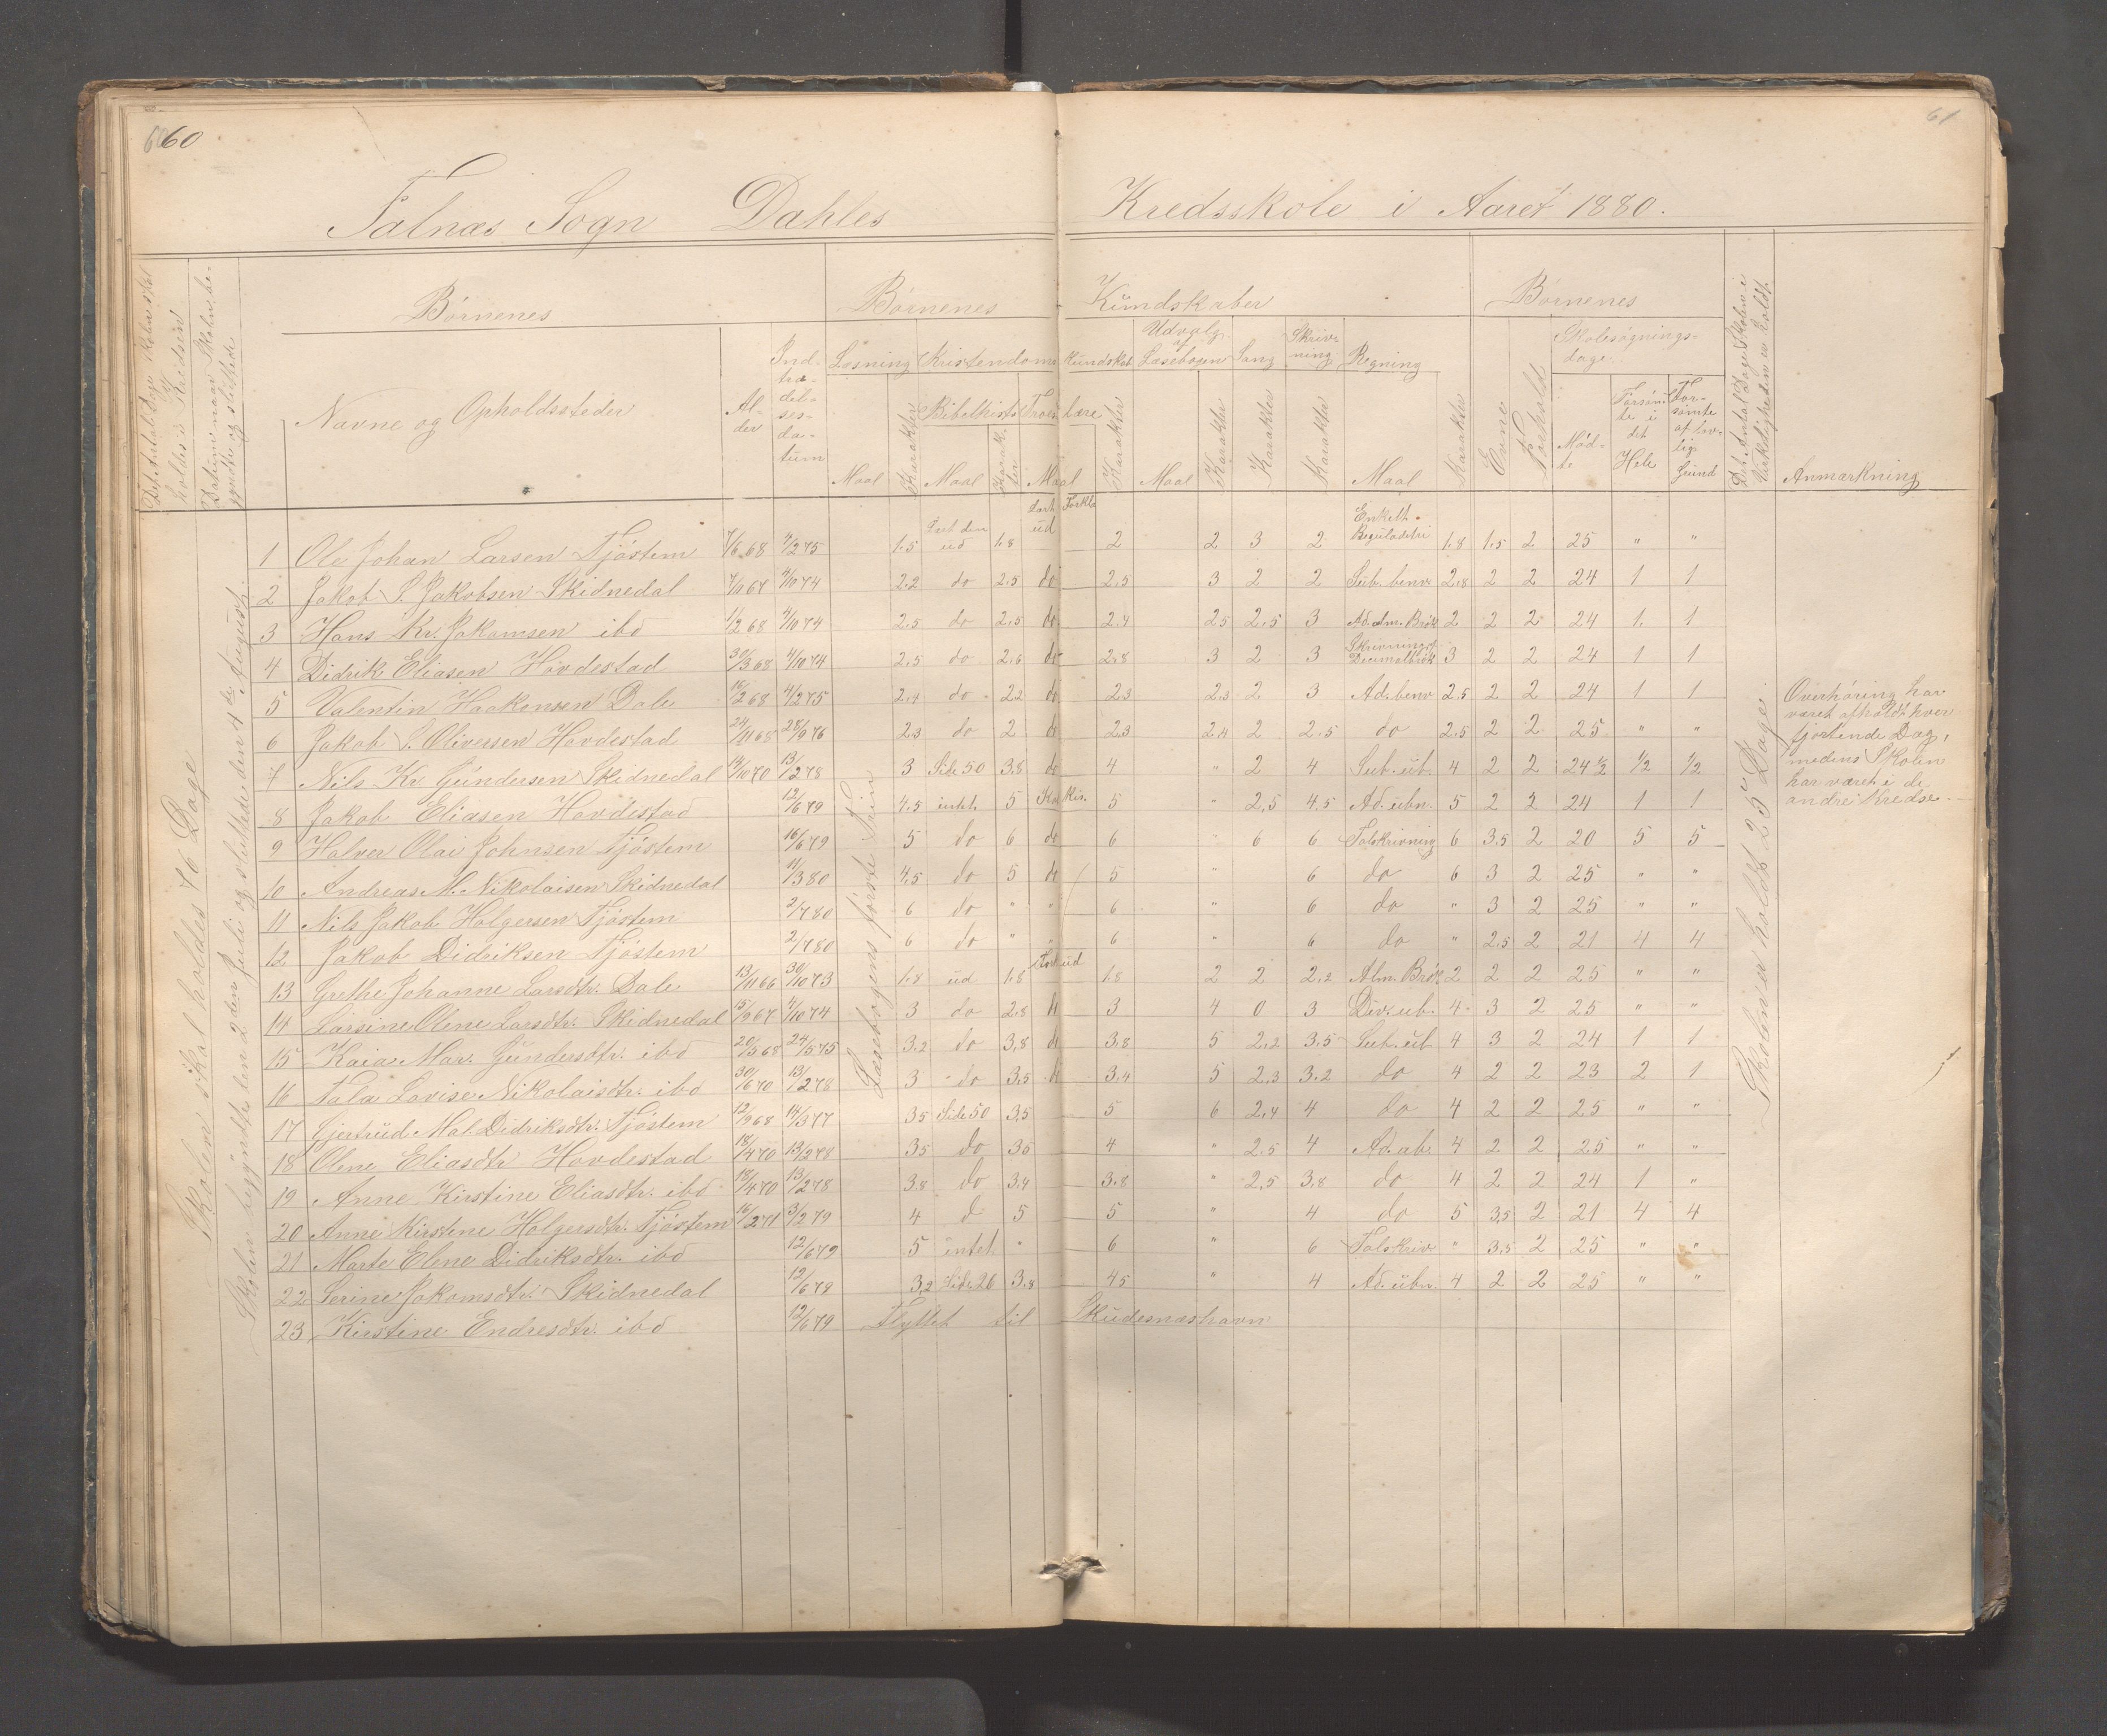 60 60
61
Falnæs Sogn Dahles Kredsskole i Aaret 1880.
Det Antal Dage Skolen skal holdes i Kredsen
Datum naar Skolen begyndte og sluttede
Børnenes
Børnenes Kundskaber
Børnenes
Det Antal Dage Skolen i Virkeligheden er holdt.
Navne og Opholdssteder
Alder
Indtrædelsesdatum
Læsning
Kristendomskundskab
Udvalg af Læsebogen
Sang
Skrivning
Regning
Evne
Forhold
Skolesøgningsdage
Bibelhist.
Troeslære
Maal
Karakter
Maal
Karakter
Maal
Karakter
Maal
Karakter
Karakter
Karakter
Maal
Karakter
Mødte
Forsømte i det Hele
Forsømte af lovlig Grund
Anmærkning
Skolen skal holdes 76 Dage
Skolen begyndtes den 2den Juli og sluttede den 4de August.
Læsebogens første Trin
Skolen er holdt 25 Dage.
Forkla
1 Ole Johan Larsen Tjøstem 7/6 68 4/2 75 1.5 ud 1.8 ud 2 2 3 2 Enkelt Reguladetri 1.8 1.5 2 25 " "
2 Jakob S. Jakobsen Skidnedal 7/10 67 4/10 74 2.2 do 2.5 do 2.5 3 2 2 Sub. benv 2.8 2 2 24 1 1
3 Hans Kr. Jakomsen ibd 1/2 68 4/10 74 2.5 do 2.5 do 2.4 2.5 2.5 3 Ad. alm. Brøk 2 2 2 24 1. 1
4 Didrik Eliasen Hovdestad 30/3 68 4/10 74 2.5 do 2.6 do 2.8 3 2 3 Skrivning af Decimalbrøk 3 2 2 24 1 1
5 Valentin Haakensen Dale 16/2 68 4/2 75 2.4 do 2.2 do 2.3 2.3 2 3 Ad. benv 2.5 2 2 24 1 1
6 Jakob S. Oliversen Hovdestad 24/11 68 28/9 76 2.3 do 2 do 2.3 2.4 2 2.5 do 2.5 2 2 25 " "
7 Nils Kr Gundersen Skidnedal 14/10 70 13/2 78 3 Side 50 3.8 do 4 " 2 4 Sub. ub. 4 2 2 24 1/2 1/2 1/2
8 Jakob Eliasen Hovdestad 12/6 79 4.5 intet 5 5 " 2.5 4.5 Ad. ubn. 5 2 2 24 1 1
9 Halver Olai Johnsen Tjøstem 16/6 79 5 do 6 do 6 " 6 6 Talskrivning 6 3.5 2 20 5 5
10 Andreas M. Nikolaisen Skidnedal 11/3 80 4.5 do 5 do 5 " 6 do 6 3 2 25 " "
11 Nils Jakob Holgersen Tjøstem 2/7 80 6 do " " 6 " 6 do " 3 2 25 " "
12 Jakob Didriksen Tjøstem 2/7 80 6 do " " 6 " 6 do " 2.5 2 21 4 4
13 Grethe Johanne Larsdtr. Dale 13/11 66 30/10 73 1.8 ud 1.8 ud 1.8 2 2 2.2 Alm. Brøk 2 2 2 25 " "
14 Larsine Olene Larsdtr. Skidnedal 15/9 67 4/10 74 3 do 2.8 do 3 4 0 3 Div. ub. 4 3 2 25 " "
15 Kaia Mar. Gundersdtr. ibd 20/3 68 24/5 75 3.2 do 3.8 do 3.8 5 2.2 3.5 Sub. ub 4 3 2 24 1 1
16 Tala Lovise Nikolaisdtr. ibd 30/6 70 13/2 78 3 do 3.5 do 3.4 5 2.3 3.2 do 4 2 2 23 2 1
17 Gjertrud Mal. Didriksdtr. Tjøstem 12/9 68 14/3 77 3.5 Side 50 3.5 5 6 2.4 4 do 4 2 2 25 " "
18 Olene Eliasdtr Hovdestad 18/4 70 13/2 78 3.5 do 3.5 4 " 2.5 4 Ad. ub. 4 2 2 25 " "
19 Anne Kirstine Eliasdtr. ibd 18/4 70 13/2 78 3.8 do 3.4 3.8 " 2.5 3.8 do 4 2 2 24 1 "
20 Anne Kirstine Holgersdtr. Tjøstem 16/2 71 3/2 79 4 d 5 5 " 4 do 5 3.5 2 21 4 4
21 Marte Elene Didriksdtr. ibd 12/6 79 5 intet " 6 " 6 Talskriv " 3.5 2 25 " "
22 Serine Jakomsdtr. Skidnedal 12/6 78 3.2 Side 26 3.8 4.5 " 4 Ad. ubn. 4 2 2 25 " "
23 Kirstine Endresdtr. ibd 12/6 79 Flyttet til Skudesnæshavn
Overhøring har
været afholdt hver
fjortende Dag,
medens Skolen
har været i de
andre Kredse.